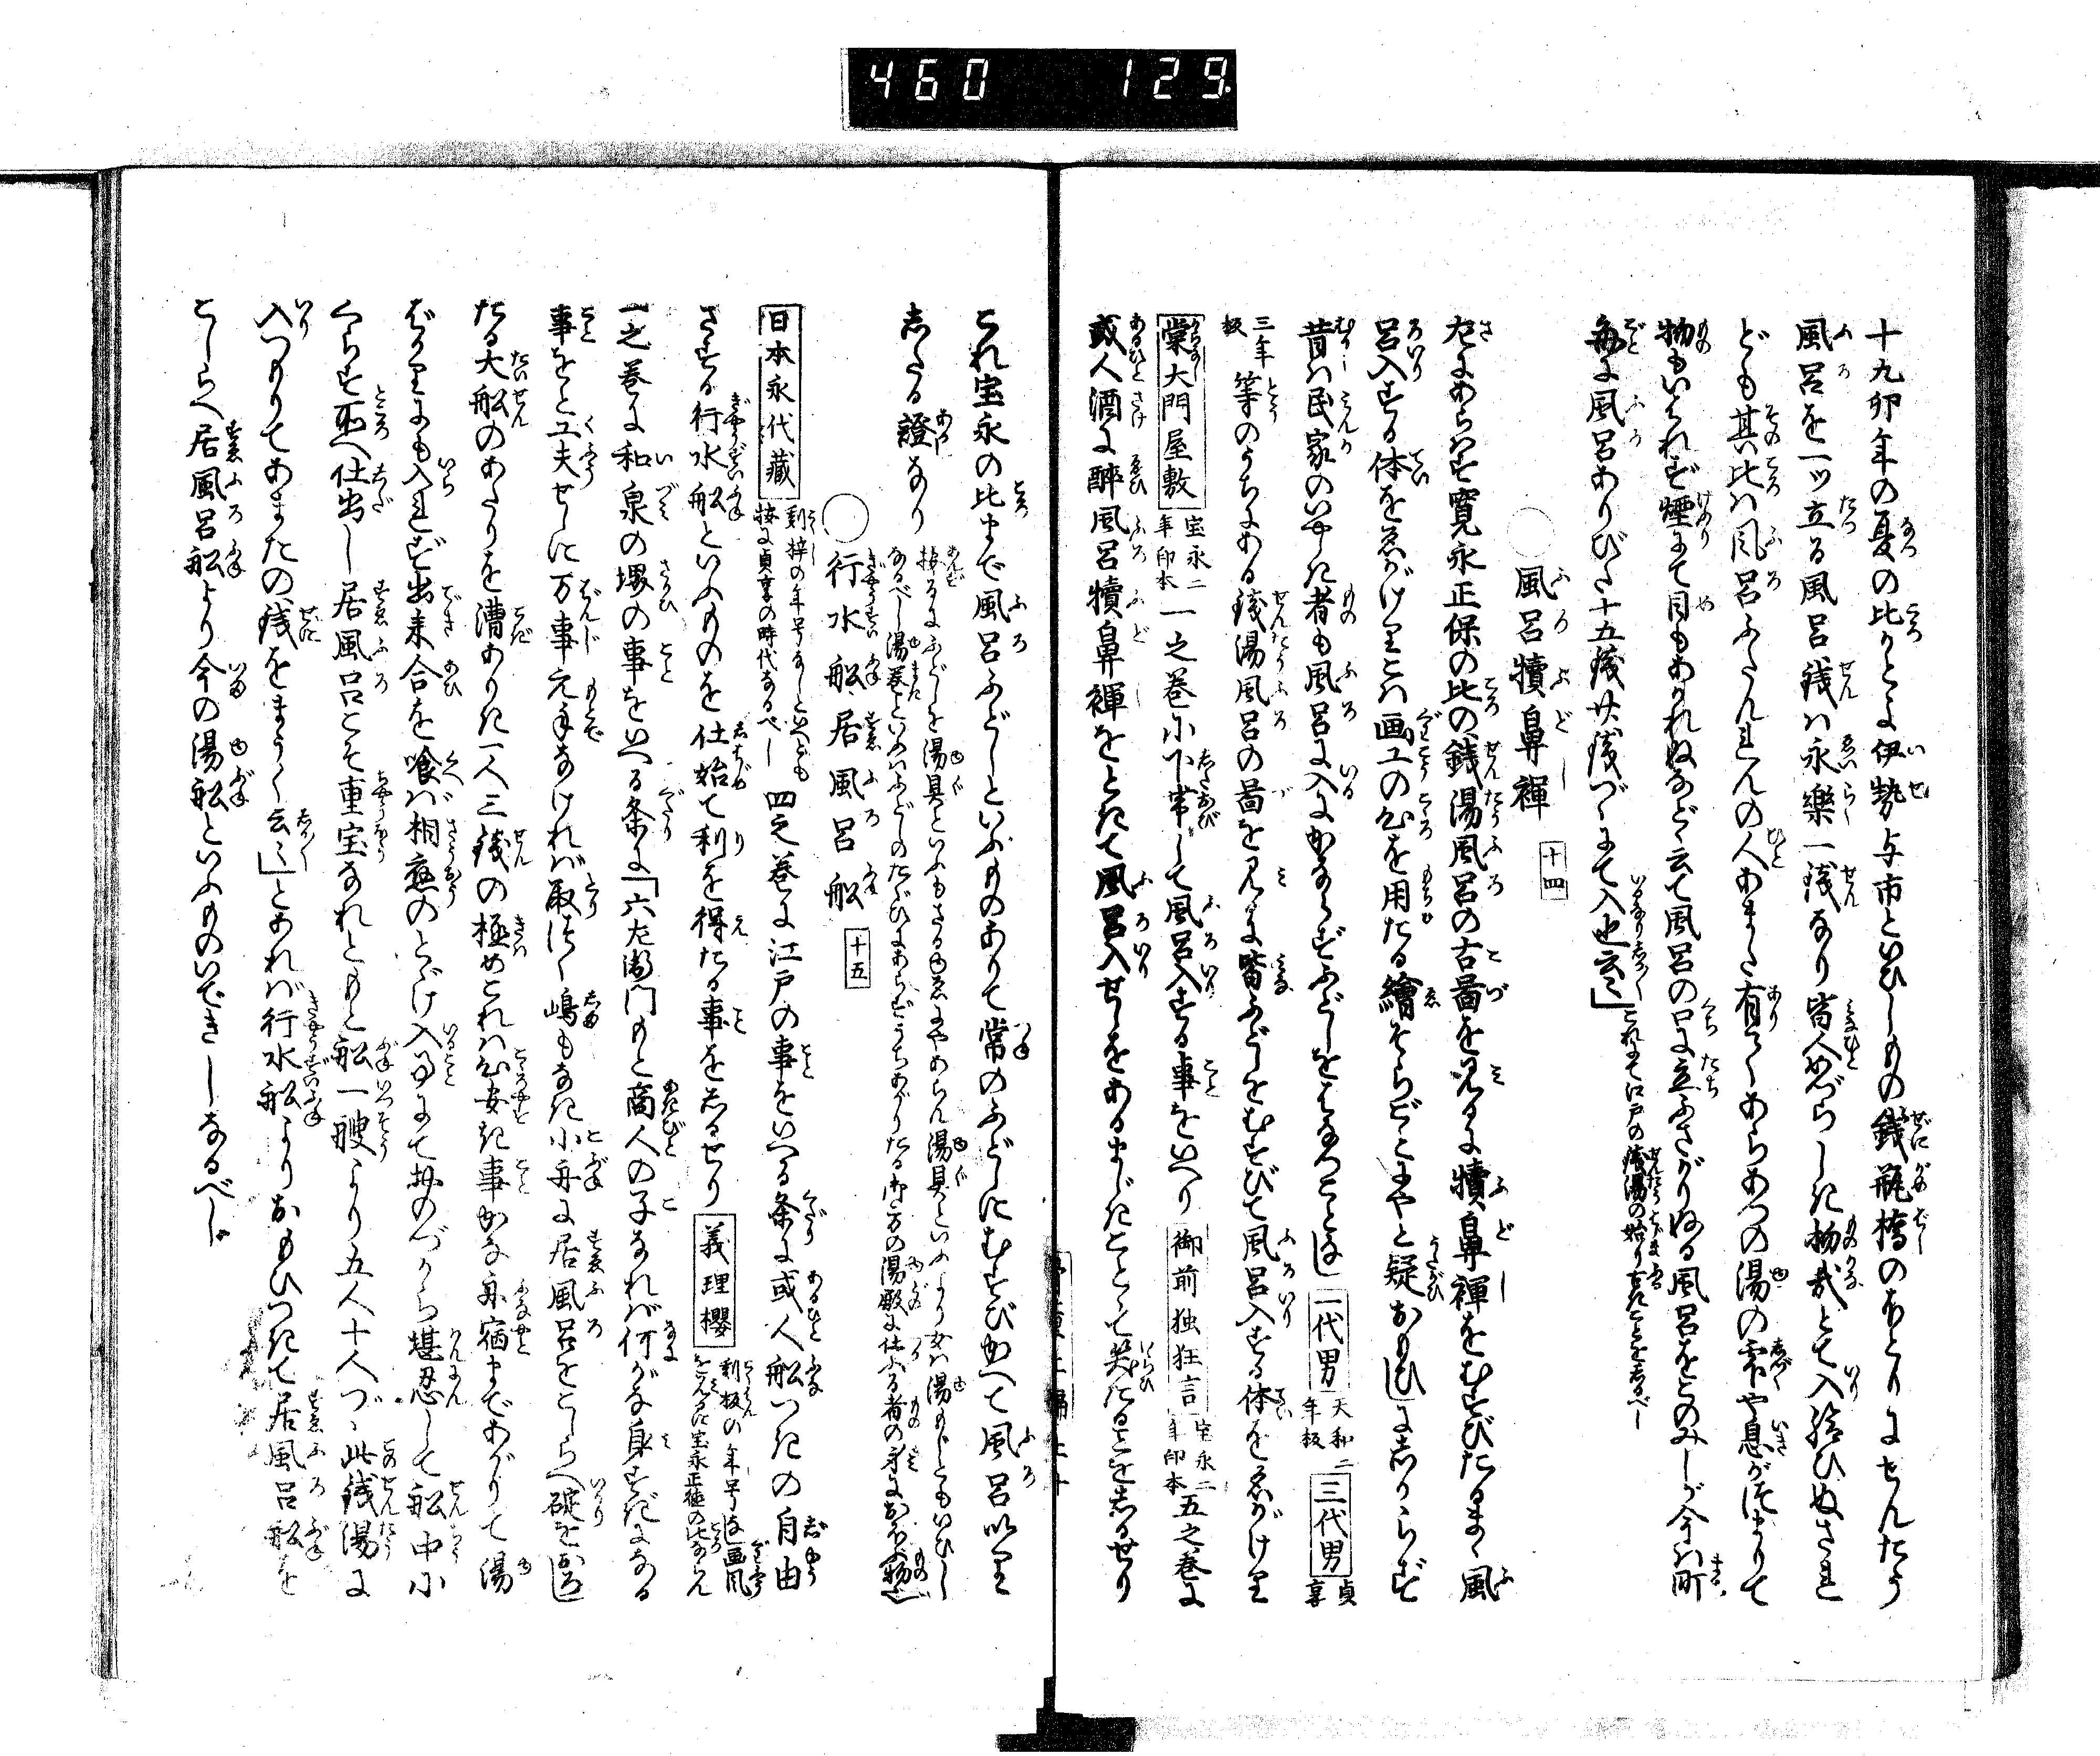 460 129
十九卯年の夏の比かとよ伊勢与市といひしもの銭瓶橋のほとりにせんたう
風呂を一ッ立る風呂銭ハ永樂一銭なり皆人めづらしき物哉とて入給ひぬされ
ども其比ハ風呂ふたんれんの人あまた有てあらあつの湯の雫や息がつまりて
物もいはれず煙にて目もあかれぬなどゝ云て風呂の口に立ふさがりぬる風呂をこのみしが今ハ町
毎に風呂ありびた十五銭廿銭づゝにて入也云云」これにて江戸の銭湯の始り古きことをしるべし
○風呂犢鼻褌 十四
左にあらはす寛永正保の比の銭湯風呂の古畵を見るに犢鼻褌をむすびたるまゝ風
呂入する体をゑがけりこハ画工の心を用たる繪そらごとにやと疑おもひしにしからず
昔ハ民家のいやしき者も風呂に入にかならずふどしをはなつことなし 二代男 天和二年板 三代男 貞享
三年板 等のうちにある銭湯風呂の畵を見るに皆ふどしをむすびて風呂入する体をゑがけり
棠大門屋敷 宝永二年印本 一之巻に下帯して風呂入する事をいへり 御前独狂言 宝永二年印本 五之巻に
或人酒に醉風呂犢鼻褌をときて風呂入せしをあるまじきことゝて笑たることをしるせり
これ宝永の比まで風呂ふどしといふものありて常のふどしにむすびかへて風呂以里
したる證なり 按るにふどしを湯具といふもさるゆゑにやあらん湯具といふより女ハ湯もじともいひし
なるべし湯巻といふハふどしのたぐひにあらずうちあがりたる御方の湯殿に仕ふる者の身におほふ物也
○行水船居風呂船 十五
日本永代藏 刻梓の年号なしといへども按に貞享の時代なるべし 四之巻に江戸の事をいへる条に或人船つきの自由
さする行水船といふものを仕始て利を得たる事をしるせり 義理櫻 刻板の年号ハなし画風をみるに宝永正徳の比ならん
一之巻に和泉の堺の事をいへる条に「六左衛門もと商人の子なれば何がな身すぎになる
事をと工夫せしに万事元手なければ取つく嶋もなき小舟に居風呂をこしらへ碇を䑓
たる大船のあたりを漕ありき一人三銭の極めこれハ心安き事かな舟宿まであがりて湯
ばかりにも入れず出来合を喰ば相應のとゞけ入ゆにておのづから堪忍して船中に
くらす所へ仕出し居風呂こそ重宝なれともと船一艘より五人十人づゝ此銭湯に
入つもりてあまたの銭をまうく云々」とあれば行水船よりおもひつきて居風呂船を
こしらへ居風呂船より今の湯船といふものいできしなるべし